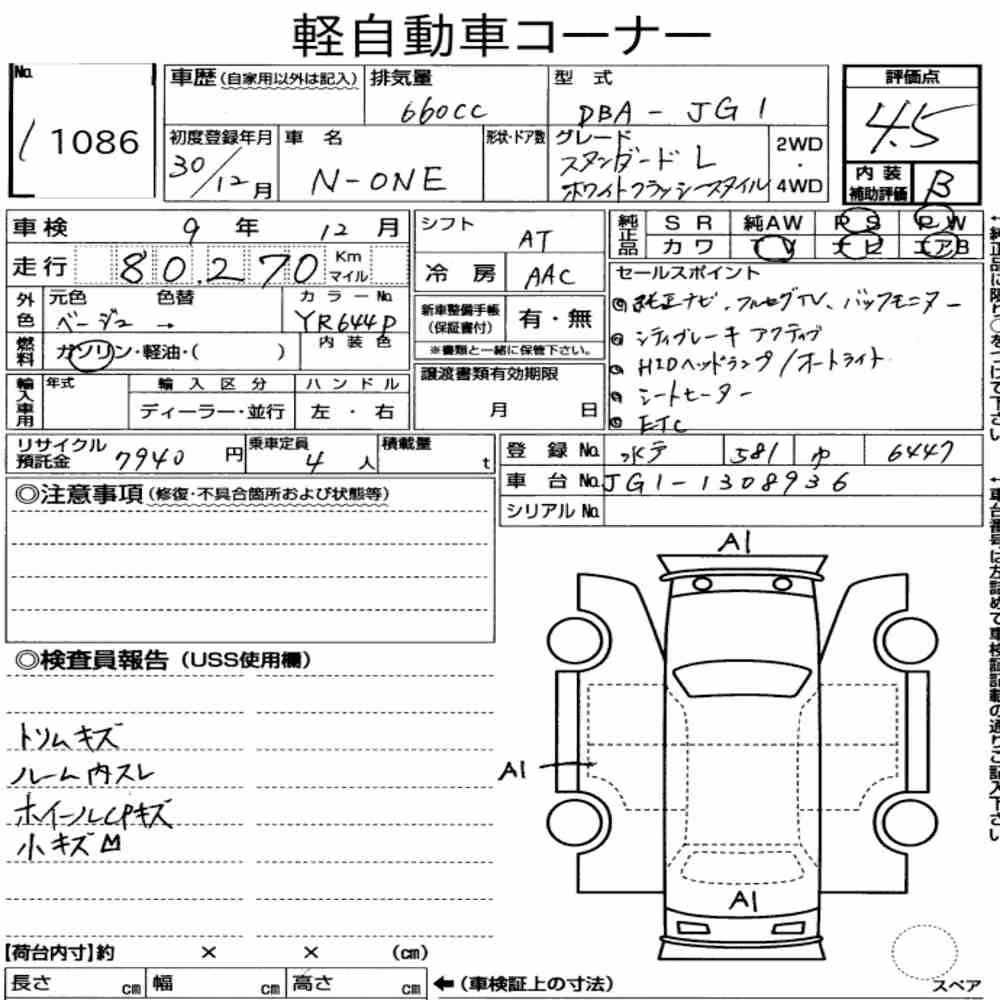 軽自動車コーナー
No. 1086
車歴(自家用以外は記入) 排気量 660cc 型式 DBA-JG1
評価点 4.5
初度登録年月 30/12月 車名 N-ONE 形状・ドア数 グレード スタンダードL ホワイトクラッシースタイル 2WD・4WD
内装補助評価 B
車検 9年 12月
走行 80,270 Km マイル
シフト AT
冷房 AAC
純正品 SR 純AW PS PW
カワ TV ナビ エアB
外色 元色 ベージュ 色替 → カラーNo. YR644P
燃料 ガソリン・軽油・( ) 内装色
新車整備手帳(保証書付) 有・無
※書類と一緒に保管下さい。
セールスポイント
純正ナビ、フルセグTV、バックモニター
シティブレーキアクティブ
HIDヘッドランプ/オートライト
シートヒーター
ETC
輸入車用 年式 輸入区分 ディーラー・並行 ハンドル 左・右
譲渡書類有効期限 月 日
リサイクル預託金 7940円 乗車定員 4人 積載量 t
登録No. 水戸 581 ゆ 6447
車台No. JG1-1308936
シリアルNo.
◎注意事項(修復・不具合箇所および状態等)
◎検査員報告(USS使用欄)
トリムキズ
ルーム内スレ
ホイールCPキズ
小キズ
A1
A1
A1
【荷台内寸】約 × × (cm)
長さ cm 幅 cm 高さ cm ←(車検証上の寸法)
スペア